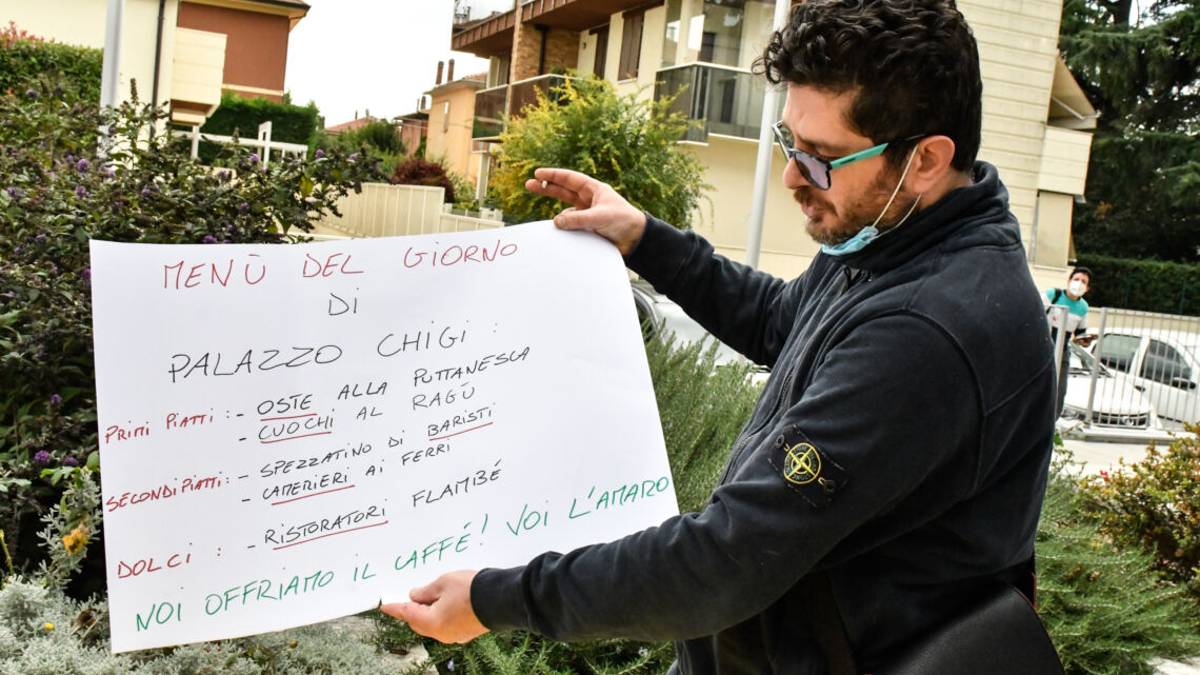 MENÙ DEL GIORNO
DI
PALAZZO CHIGI :
PRIMI PIATTI : - OSTE ALLA PUTTANESCA
- CUOCHI AL RAGÙ
SECONDI PIATTI : - SPEZZATINO DI BARISTI
- CAMERIERI AI FERRI
DOLCI : - RISTORATORI FLAMBÉ
NOI OFFRIAMO IL CAFFÉ! VOI L'AMARO